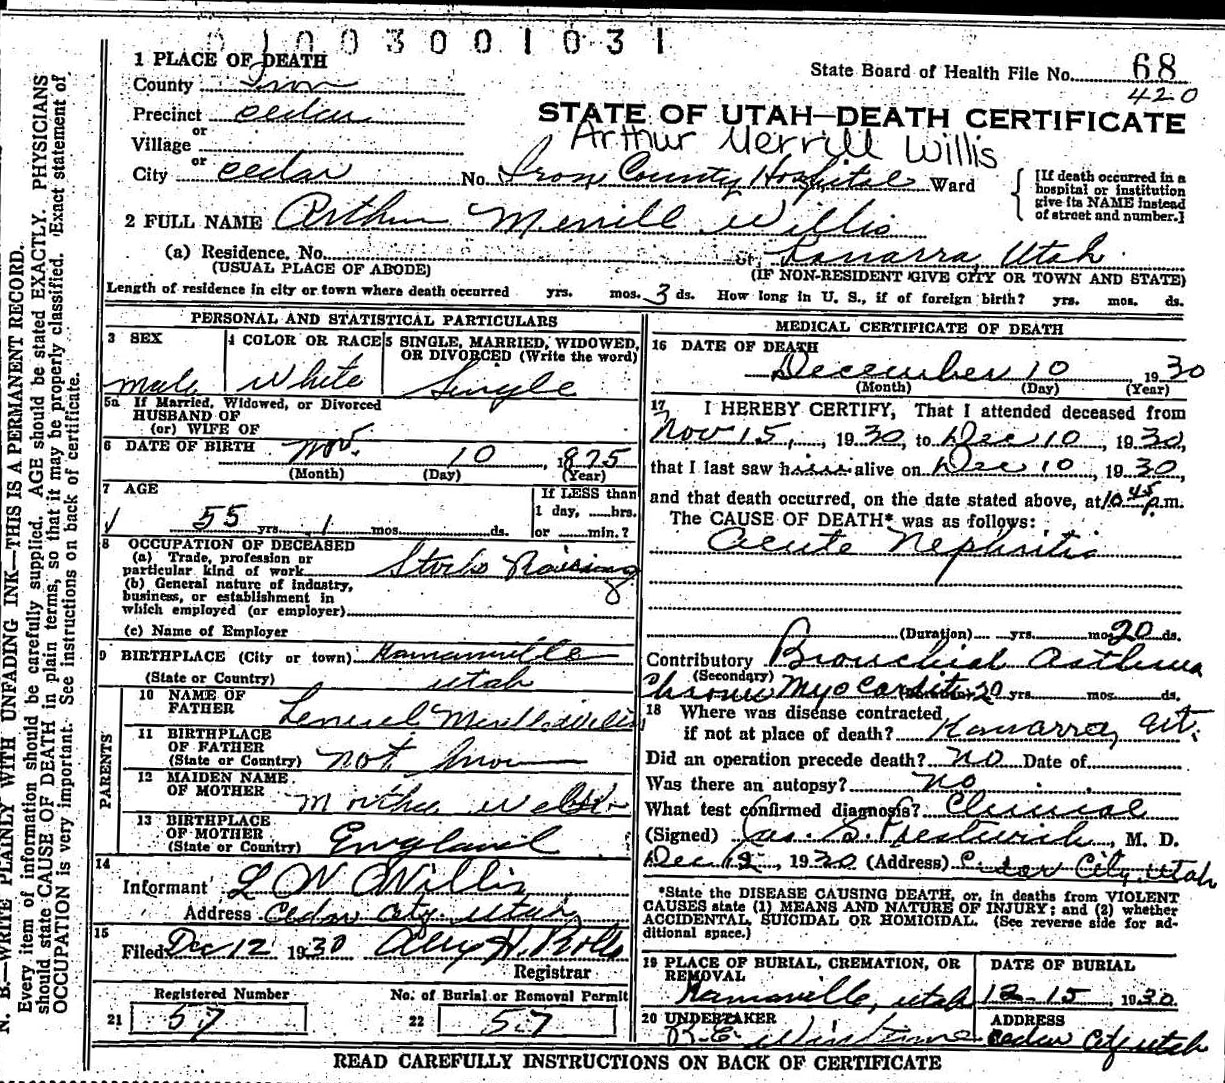 01003001031
1 PLACE OF DEATH
State Board of Health File No. 68
420
County Iron
Precinct Cedar
STATE OF UTAH—DEATH CERTIFICATE
or
Village
Arthur Merrill Willis
or
City Cedar No. Iron County Hospital Ward
[If death occurred in a
hospital or institution
give its NAME instead
of street and number.]
2 FULL NAME Arthur Merrill Willis
(a) Residence, No. St. Kanarra, Utah
(USUAL PLACE OF ABODE) (IF NON-RESIDENT GIVE CITY OR TOWN AND STATE)
Length of residence in city or town where death occurred yrs. mos. 3 ds. How long in U. S., if of foreign birth? yrs. mos. ds.
PERSONAL AND STATISTICAL PARTICULARS
3 SEX
male
4 COLOR OR RACE
White
5 SINGLE, MARRIED, WIDOWED,
OR DIVORCED (Write the word)
Single
5a If Married, Widowed, or Divorced
HUSBAND OF
(or) WIFE OF
6 DATE OF BIRTH Nov. 10, 1875
(Month) (Day) (Year)
7 AGE
55 yrs. 1 mos. ds.
If LESS than
1 day, hrs.
or min.?
8 OCCUPATION OF DECEASED
(a) Trade, profession or
particular kind of work Stock Raising
(b) General nature of industry,
business, or establishment in
which employed (or employer)
8
(c) Name of Employer
9 BIRTHPLACE (City or town) Hamanville
(State or Country) Utah
PARENTS
10 NAME OF
FATHER
Willis
11 BIRTHPLACE
OF FATHER
(State or Country) not know
12 MAIDEN NAME
OF MOTHER
13 BIRTHPLACE
OF MOTHER
(State or Country) England
14
Informant L W Willis
Address Cedar City Utah
15
Filed Dec 12 1930
Registrar
Registered Number
21 57
No. of Burial or Removal Permit
22 57
MEDICAL CERTIFICATE OF DEATH
16 DATE OF DEATH
December 10 1930
(Month) (Day) (Year)
17 I HEREBY CERTIFY, That I attended deceased from
Nov 15, 1930, to Dec 10, 1930,
that I last saw him alive on Dec 10, 1930,
and that death occurred, on the date stated above, at 10 45 p.m.
The CAUSE OF DEATH* was as follows:
Acute Nephritis
(Duration) yrs. mos. 20 ds.
Contributory Bronchial Asthma
(Secondary)
Chronic Myocarditis 20 yrs. mos. ds.
18 Where was disease contracted
if not at place of death? Kanarra, Ut.
Did an operation precede death? No Date of
Was there an autopsy? No
What test confirmed diagnosis? Clinical
(Signed) Jas. S. Prestwich, M. D.
Dec 12, 1930 (Address) Cedar City, Utah
*State the DISEASE CAUSING DEATH, or, in deaths from VIOLENT
CAUSES state (1) MEANS AND NATURE OF INJURY; and (2) whether
ACCIDENTAL, SUICIDAL OR HOMICIDAL. (See reverse side for ad-
ditional space.)
19 PLACE OF BURIAL, CREMATION, OR
REMOVAL
Hamanville, Utah
DATE OF BURIAL
12-15, 1930
20 UNDERTAKER
ADDRESS
Cedar City Utah
READ CAREFULLY INSTRUCTIONS ON BACK OF CERTIFICATE
N. B.—WRITE PLAINLY WITH UNFADING INK—THIS IS A PERMANENT RECORD.
Every item of information should be carefully supplied. AGE should be stated EXACTLY. PHYSICIANS
should state CAUSE OF DEATH in plain terms, so that it may be properly classified. Exact statement of
OCCUPATION is very important. See instructions on back of certificate.